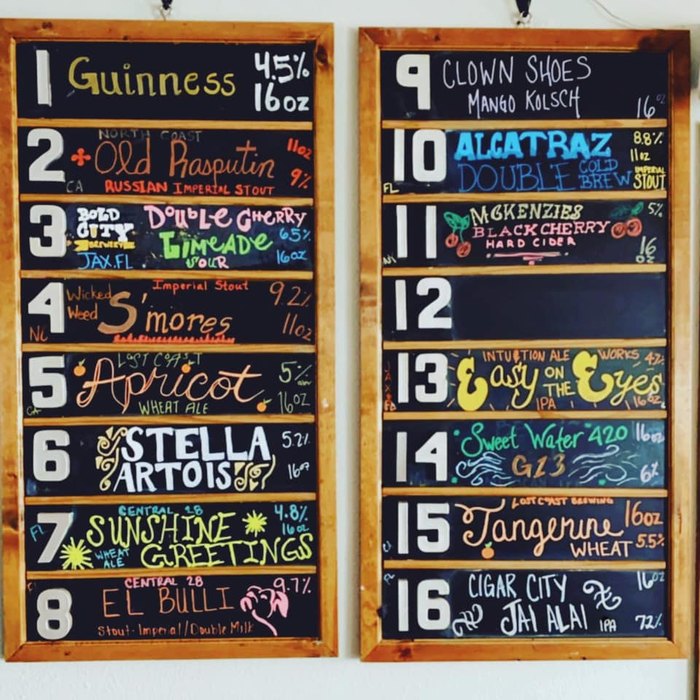 1 Guinness 4.5%
16oz
NORTH COAST
2 Old Rasputin 11oz
CA RUSSIAN IMPERIAL STOUT 9%
3 BOLD CITY BREWERY DOUBLE CHERRY
LIMEADE 6.5%
JAX.FL SOUR 16oz
Imperial Stout 9.2%
4 Wicked Weed S'mores
NC 11oz
LOST COAST
5 Apricot 5%
CA WHEAT ALE 16oz
6 STELLA 5.2%
ARTOIS 16oz
CENTRAL 28 4.8%
FL 16oz
7 SUNSHINE
WHEAT ALE GREETINGS
CENTRAL 28 9.7%
8 EL BULLI
Stout-Imperial/Double Milk
9 CLOWN SHOES
MANGO KOLSCH 16oz
10 ALCATRAZ 8.8%
11oz
FL DOUBLE COLD BREW IMPERIAL STOUT
11 MCKENZIES 5%
BLACK CHERRY
HARD CIDER 16oz
12
INTUITION ALE WORKS
13 Easy ON THE Eyes
IPA 16oz
14 Sweet Water 420 16oz
G13 6%
LOST COAST BREWING
15 Tangerine 16oz
WHEAT 5.5%
16 CIGAR CITY 16oz
JAI ALAI IPA 7.2%